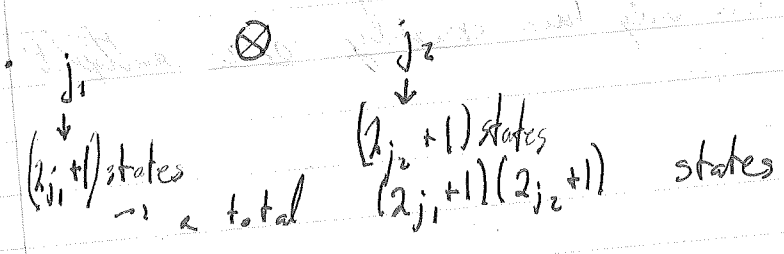 j₁ ⊗ j₂
↓ ↓
(2j₁+1) states (2j₂+1) states
→ a total (2j₁+1)(2j₂+1) states